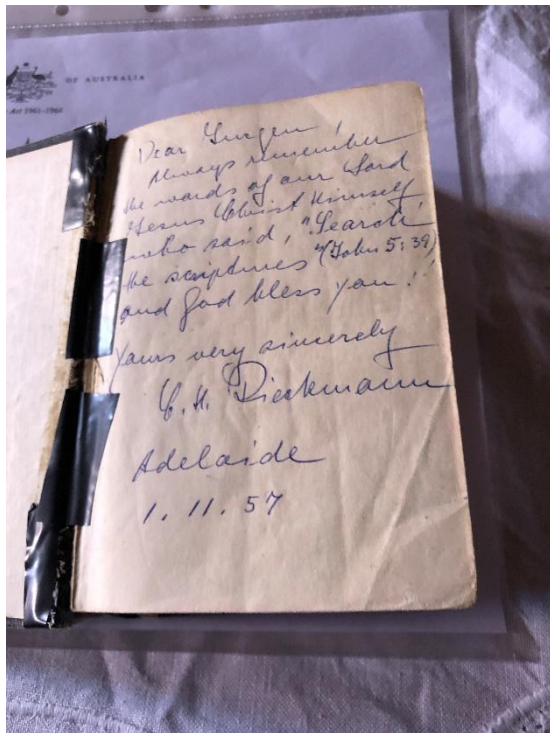 OF AUSTRALIA
Act 1961-1966
Dear Jurgen!
Always remember
the words of our Lord
Jesus Christ Himself
who said, "Search
the scriptures" (John 5:39)
and God bless you!
Yours very sincerely
C. H. Rieckmann
Adelaide
1. 11. 57